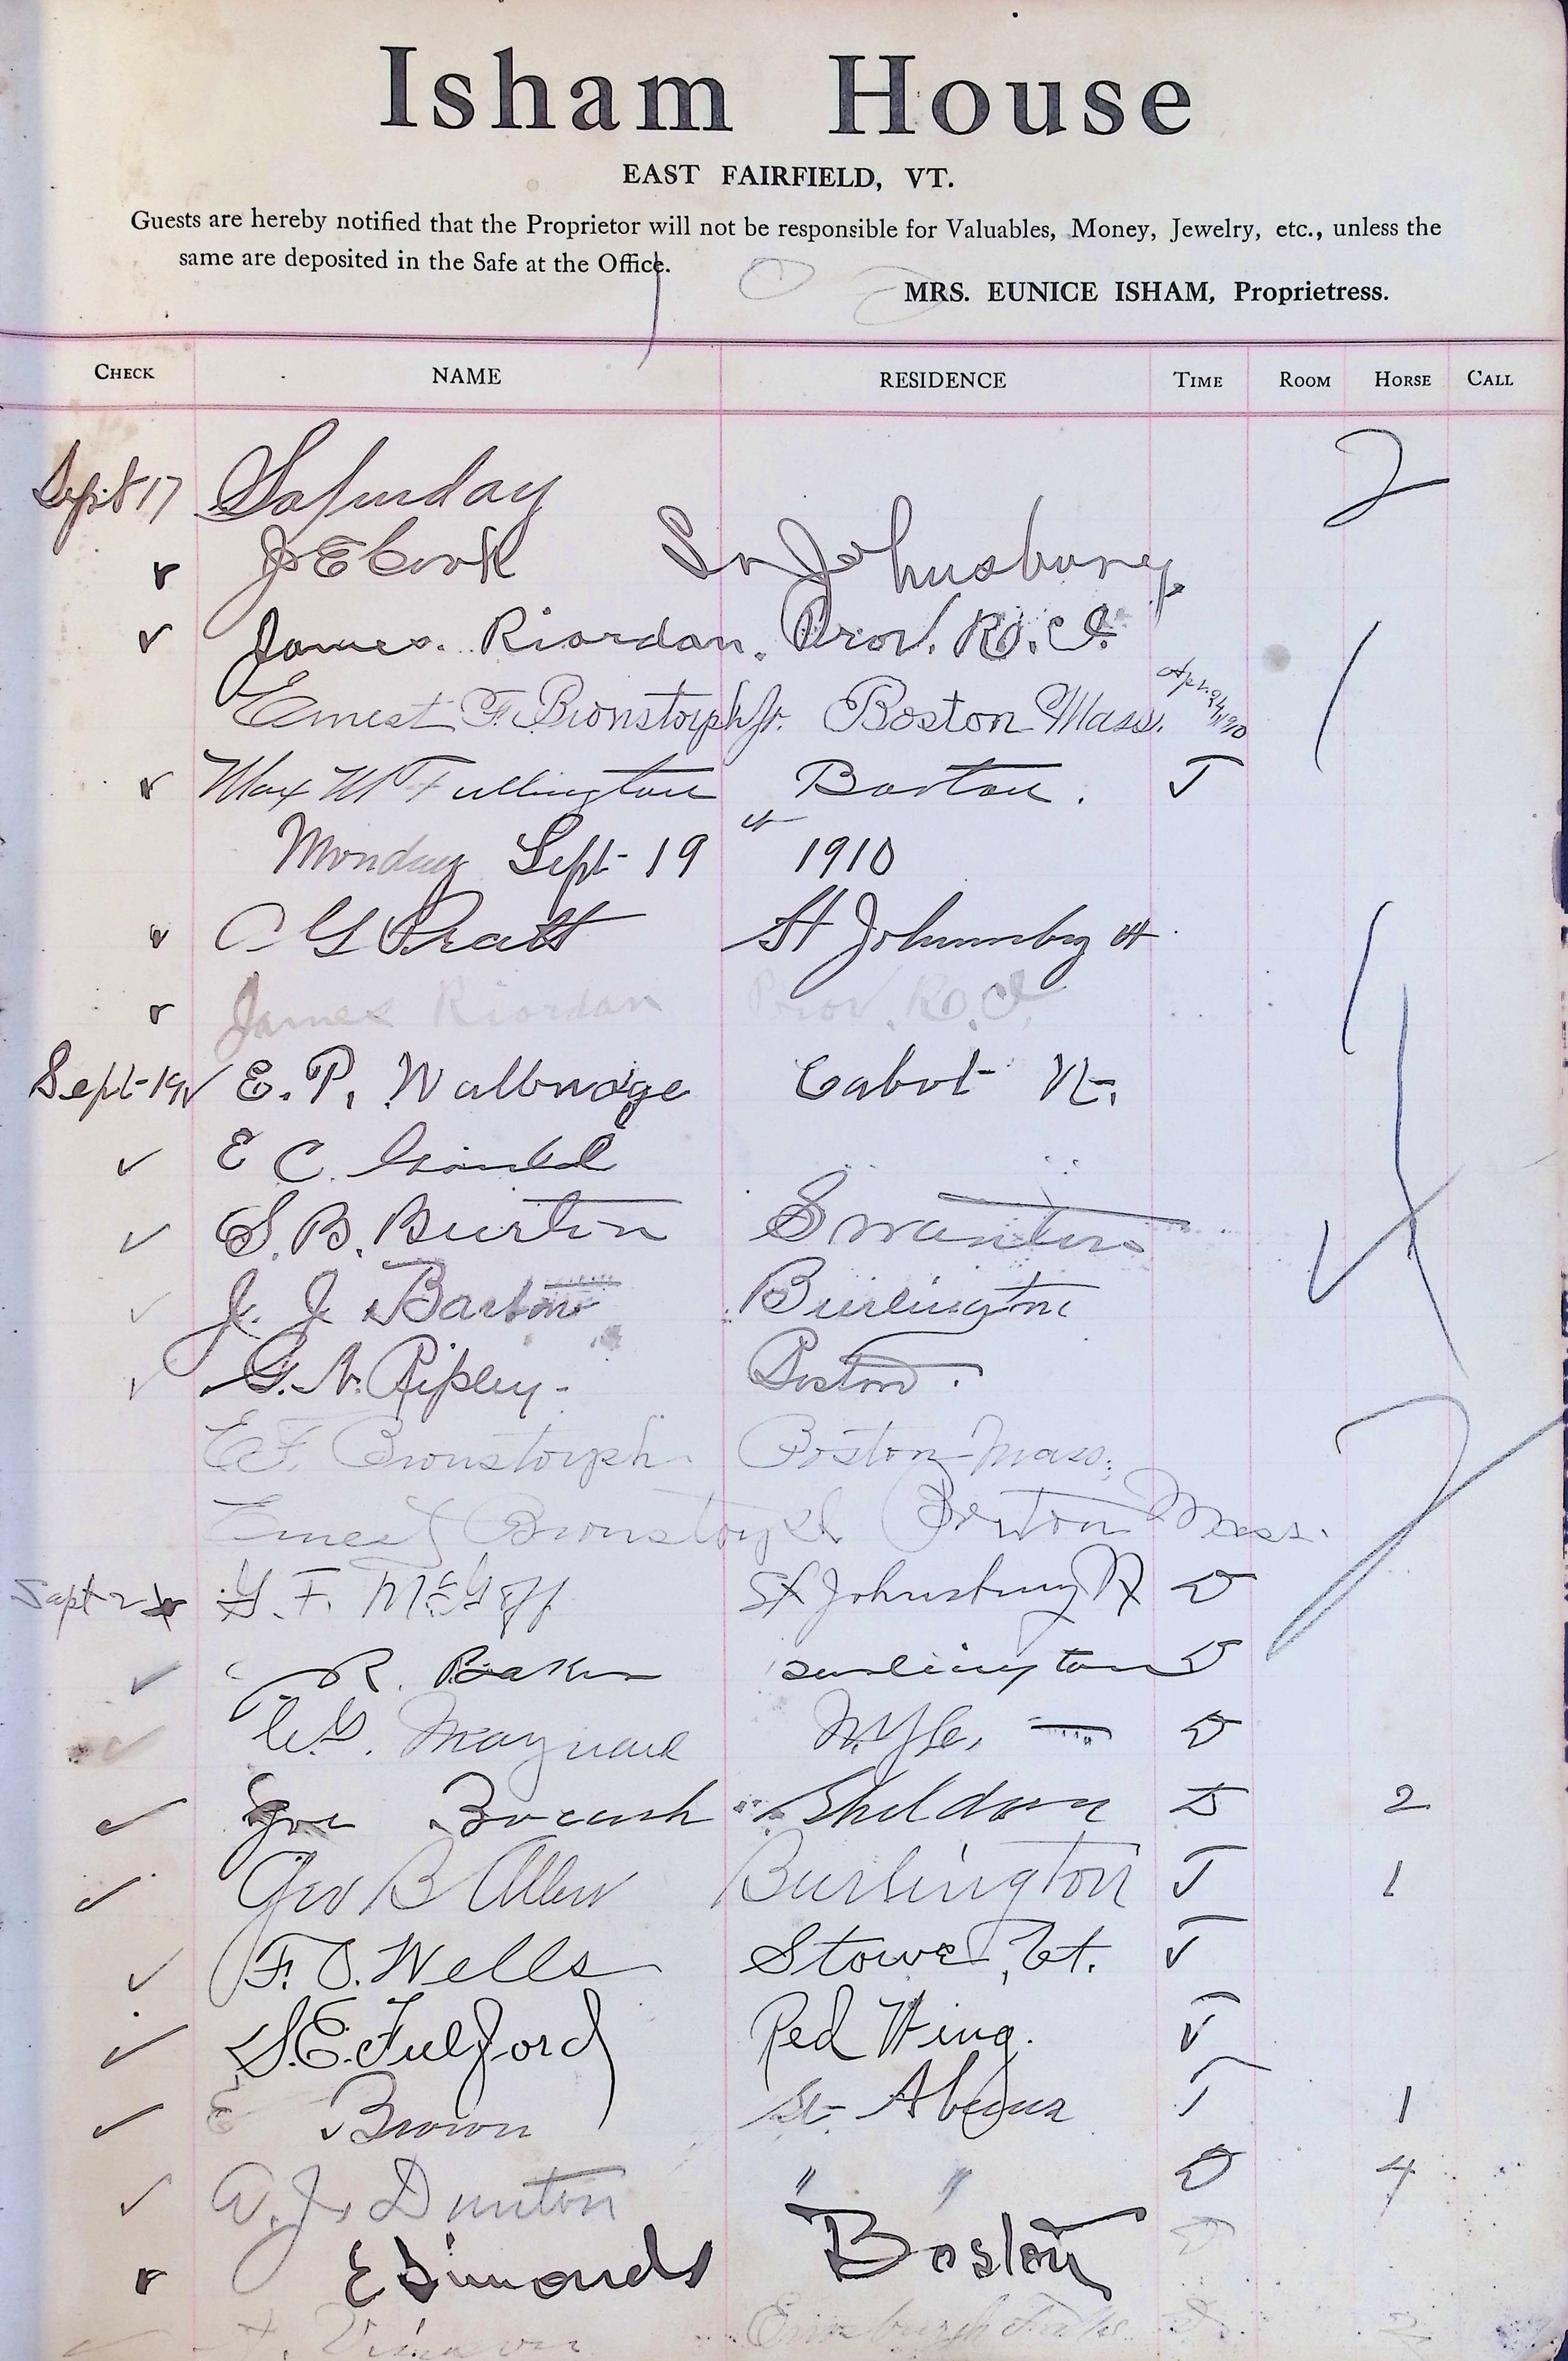 Isham House
EAST FAIRFIELD, VT.
Guests are hereby notified that the Proprietor will not be responsible for Valuables, Money, Jewelry, etc., unless the
same are deposited in the Safe at the Office.
MRS. EUNICE ISHAM, Proprietress.
CHECK NAME RESIDENCE TIME ROOM HORSE CALL
Sept 17 Saturday 2
J E Cook St Johnsbury
James. Riordan. Prov. R.I.
Ernest F. Bronstorph Jr. Boston Mass. Apr. 24 1920
Max M Fullington Barton. T
Vt
Monday Sept- 19 1910
C G Pratt St Johnsbury Vt
James Riordan Prov. R.I.
Sept-19 E. P. Walbridge Cabot Vt.
E C.
S. B. Burton Swanton
J. J. Barton Burlington
G. N. Ripley- Boston.
E.F. Bronstorph. Boston-Mass.
Ernest Bronstorph Boston Mass.
Sept 2 G. F. McGoff St Johnsbury Vt D
R. Baker Burlington D
W.G. Maynard N.Y.C. D
Joe Bocash Sheldon D 2
Geo B Allen Burlington T 1
F. O. Wells Stowe, Vt. T
S.E. Fulford Red Wing. T
E Brown St- Albans T 1
W. J. Dunton " " D 4
E Simonds Boston D
Enosburgh Falls D 2